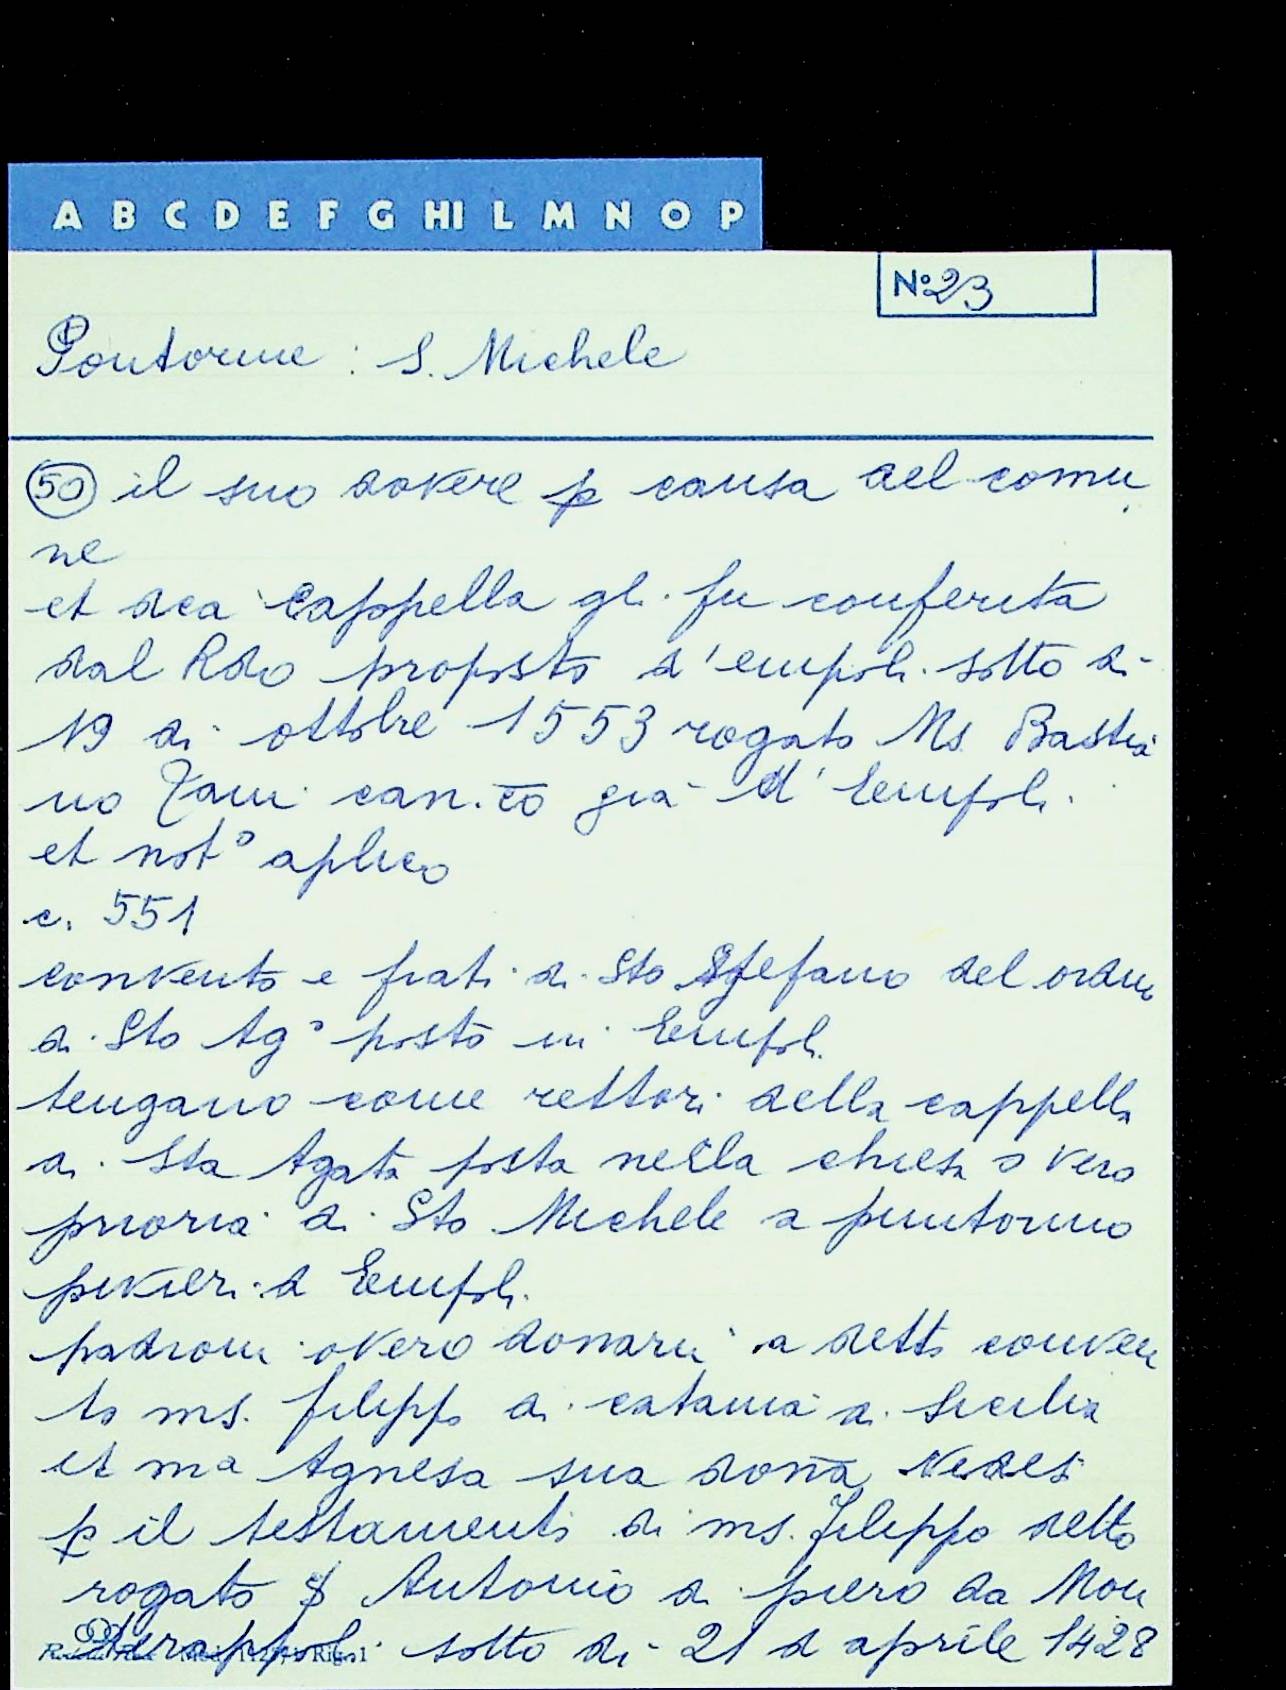 A B C D E F G HI L M N O P
N° 23
Pontorme : S. Michele
50 il suo dovere p causa del comu
ne
et dca cappella gl. fu conferita
dal Rdo proposto d'empoli sotto di
19 di ottobre 1553 rogato Ms. Bastia
no can.co già d'Empoli
et not° aplico
c. 551
convento e frati di Sto Stefano del ordine
di Sto Ag° posto in Empoli
tengano come rettori della cappella
di Sta Agata posta nella chiesa o vero
prioria di Sto Michele a puntormo
pivieri d Empoli
padroni overo donarii a detto conven
to ms. filippo di catania di Sicilia
et ma Agnesa sua dona vedesi
p il testamento di ms. filippo detto
rogato S Antonio di piero da Mon
terappoli sotto di 21 d aprile 1428